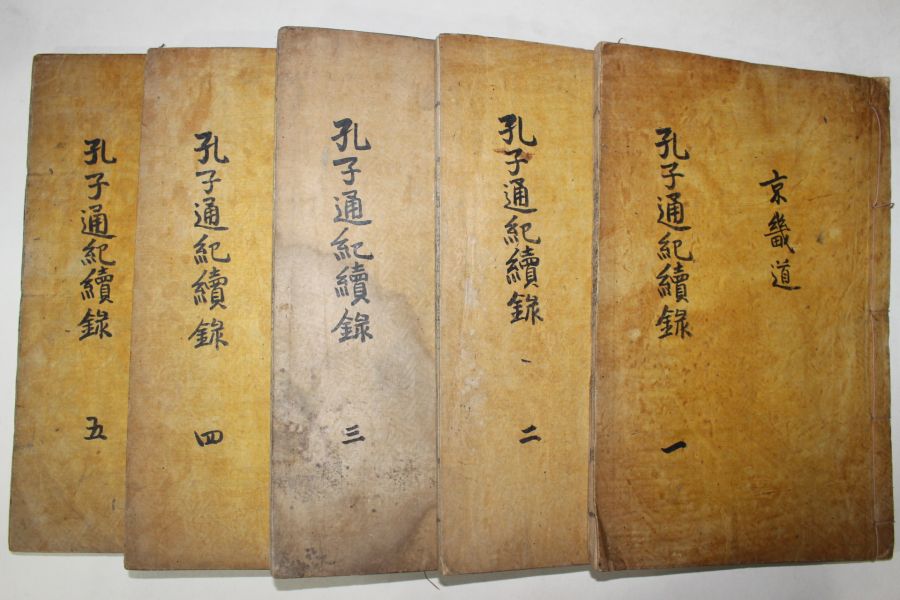 京畿道
孔子通紀續錄
一
孔子通紀續錄
二
孔子通紀續錄
三
孔子通紀續錄
四
孔子通紀續錄
五